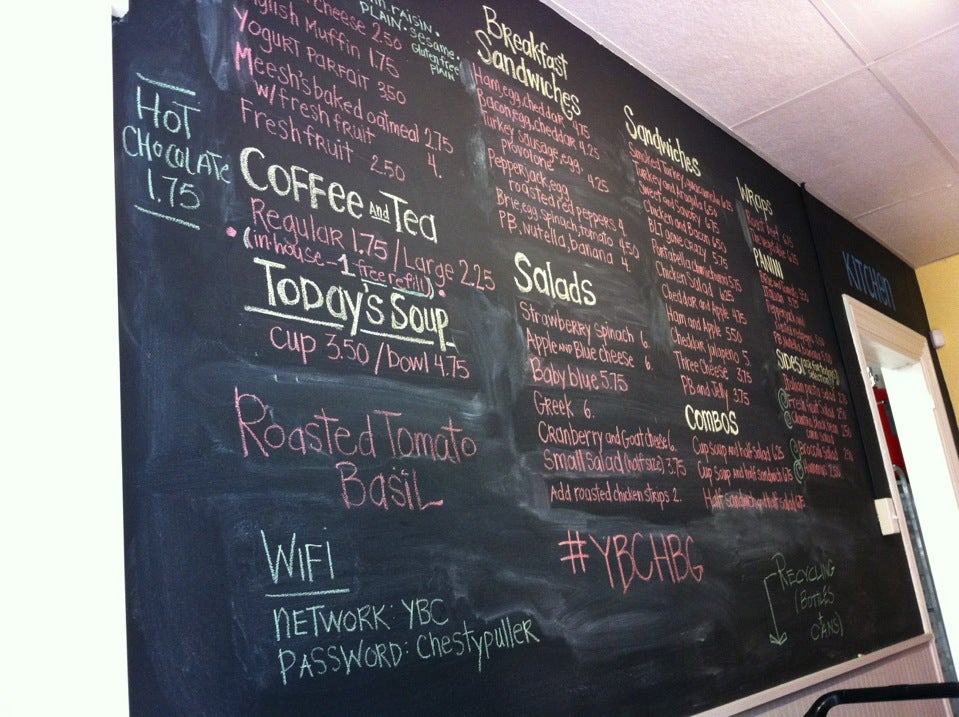 cheese 2.50
English Muffin 1.75
Yogurt Parfait 3.50
Meesh's baked oatmeal 2.75
w/fresh fruit 4.
Fresh fruit 2.50
raisin
Plain • Sesame •
Gluten free
Plain
Hot
Chocolate
1.75
Coffee and Tea
Regular 1.75/Large 2.25
• (in house - 1 free refill) •
Today's Soup
cup 3.50/bowl 4.75
Roasted Tomato
Basil
WiFi
Network: YBC
Password: Chestypuller
Breakfast
Sandwiches
Ham, egg, cheddar 4.75
Bacon, egg, cheddar 4.25
Turkey sausage, egg,
provolone 4.25
Pepperjack, egg
roasted red peppers 4.
Brie, egg, spinach, tomato 4.50
PB, Nutella, banana 4.
Salads
Strawberry spinach 6.
Apple and Blue cheese 6.
Baby blue 5.75
Greek 6.
Cranberry and Goat cheese 6.
Small Salad (half size) 3.75
Add roasted chicken strips 2.
#YBCHBG
Sandwiches
Smoked Turkey,
Turkey and Arugula 6.50
Sweet and Savory 6.75
Chicken and Bacon 6.50
BLT gone Crazy 5.75
Portabella 5.75
Chicken Salad 6.25
Cheddar and Apple 4.75
Ham and Apple 5.50
Cheddar jalapeño 5.
Three Cheese 3.75
PB and Jelly 3.75
Combos
Cup soup and half salad 6.25
Cup Soup and half sandwich 6.75
Half sandwich and half salad
Wraps
Roast beef
Panini
PB Nutella banana
Sides
Italian pasta salad
Fresh Fruit Salad
black bean
corn salad
Broccoli Salad
Hummus 2.50
Kitchen
Recycling
(Bottles
Cans)